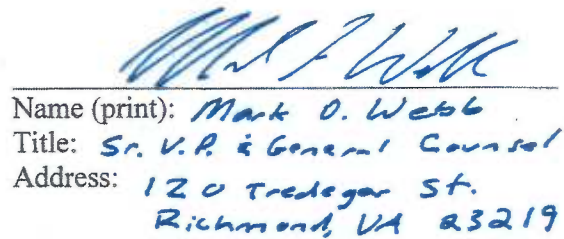 Name (print): Mark O. Webb
Title: Sr. V.P. & General Counsel
Address: 120 Tredegar St.
Richmond, VA 23219